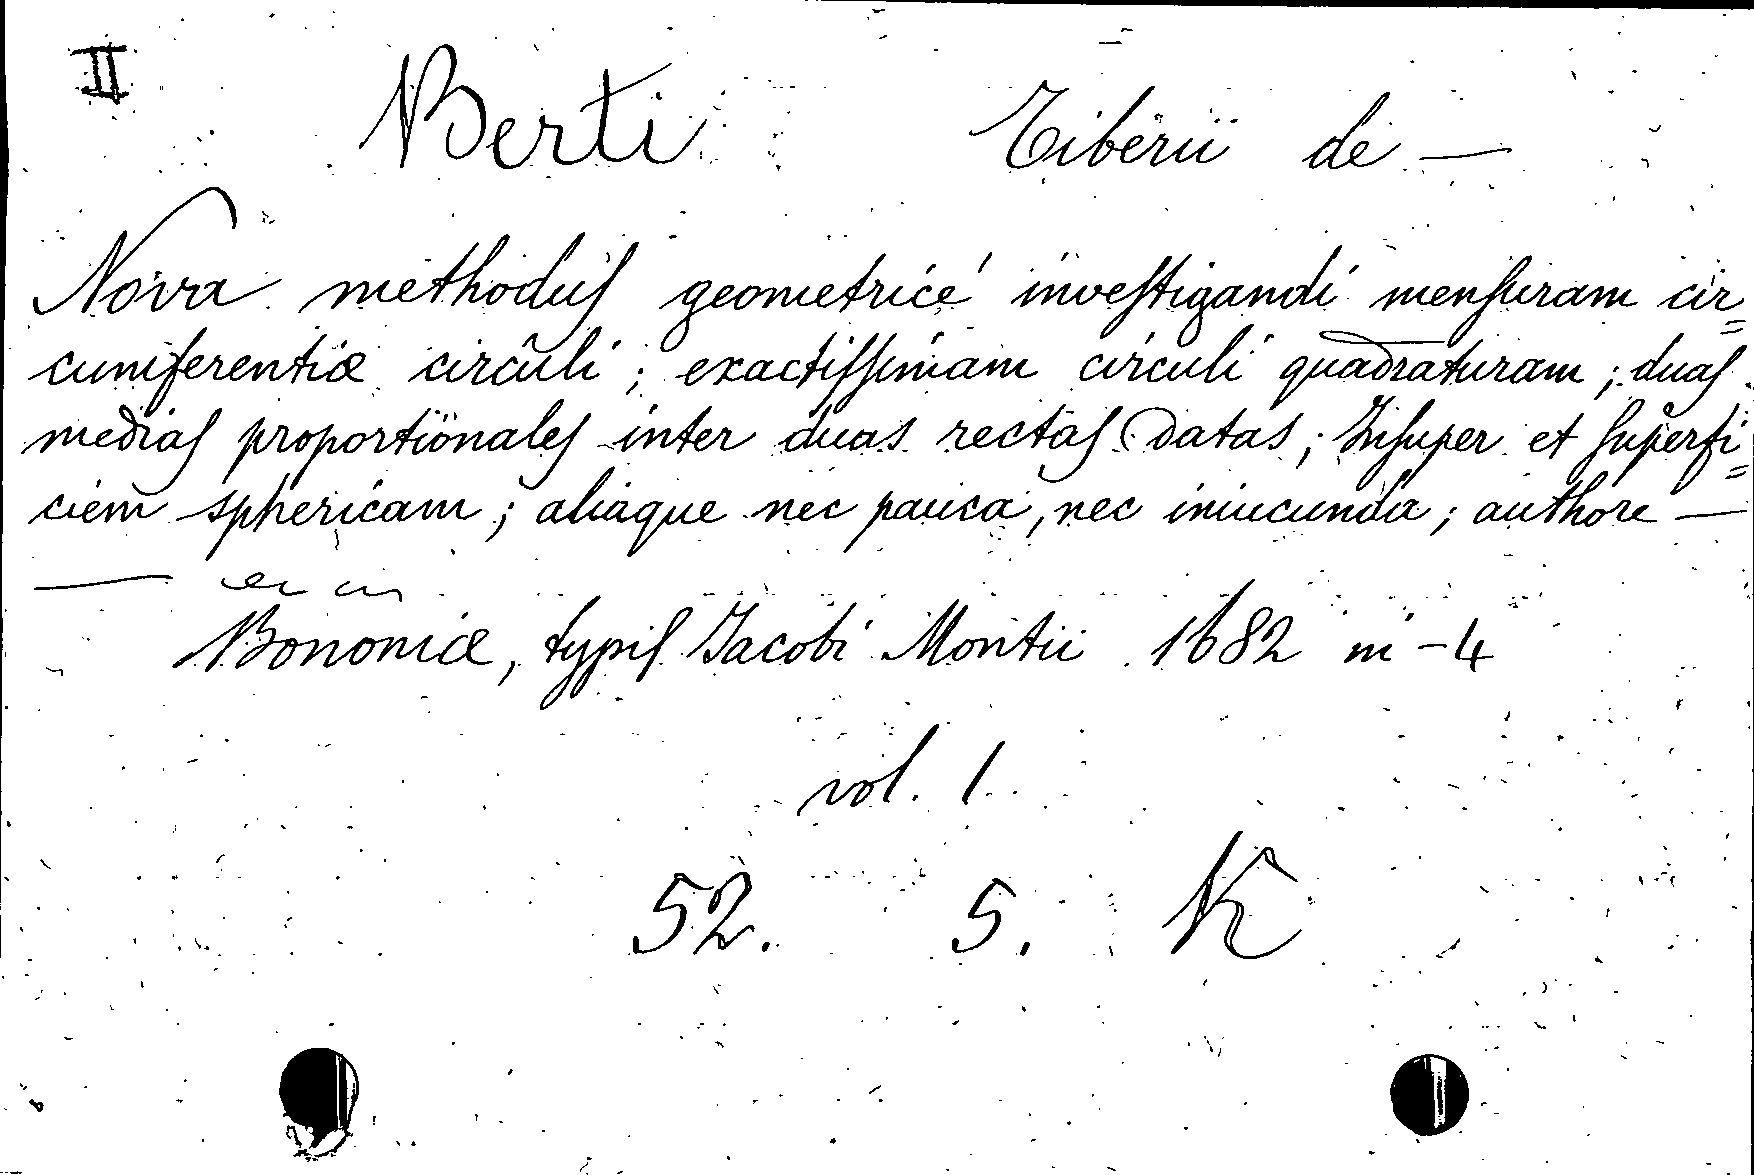 II Berti Tiberii de —
Nova methodus geometricé investigandi mensuram cir=
cumferentiæ circuli; exactissimam circuli quadraturam; duas
medias proportionales inter duas rectas datas; Insuper et superfi=
ciem sphericam; aliaque nec pauca, nec iniucunda; authore —
—
Bononiæ, typis Jacobi Montii 1682 in-4
vol. 1.
52. 5. K